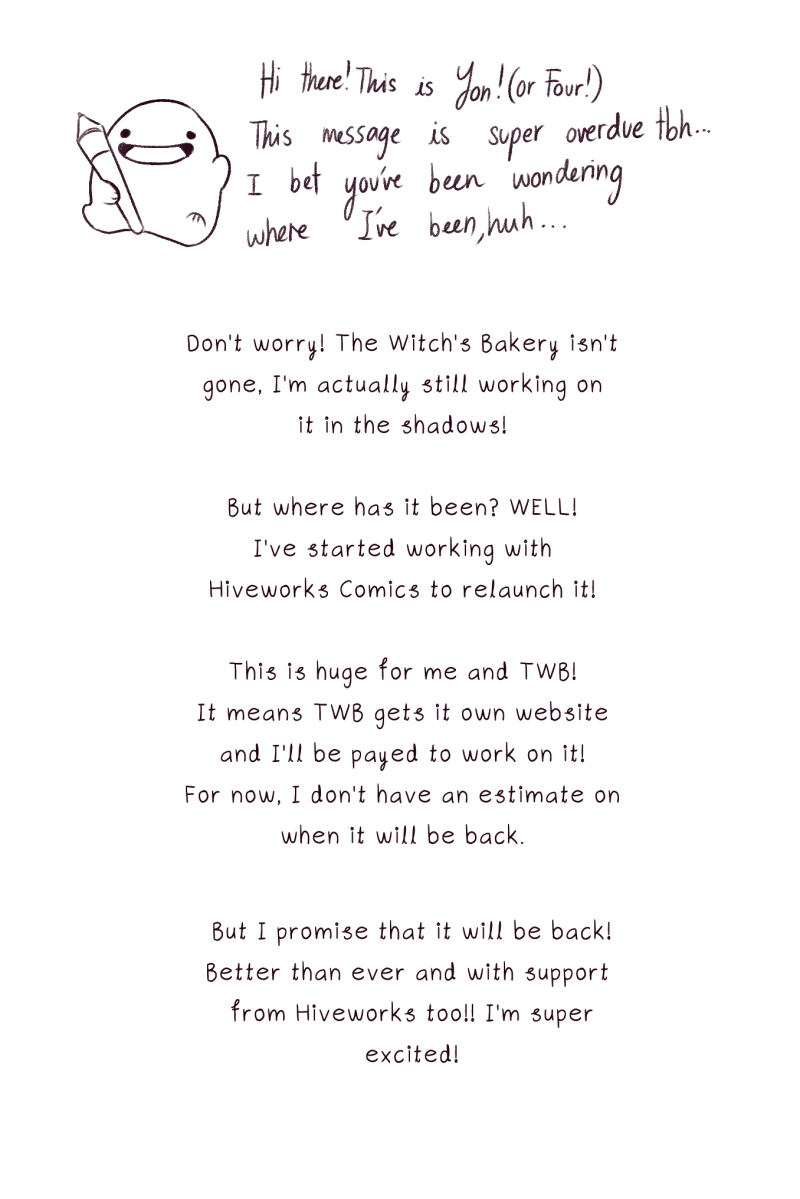 Hi there! This is Yon! (or Four!)
This message is super overdue tbh...
I bet you've been wondering
where I've been, huh...
Don't worry! The Witch's Bakery isn't
gone, I'm actually still working on
it in the shadows!
But where has it been? WELL!
I've started working with
Hiveworks Comics to relaunch it!
This is huge for me and TWB!
It means TWB gets it own website
and I'll be payed to work on it!
For now, I don't have an estimate on
when it will be back.
But I promise that it will be back!
Better than ever and with support
from Hiveworks too!! I'm super
excited!